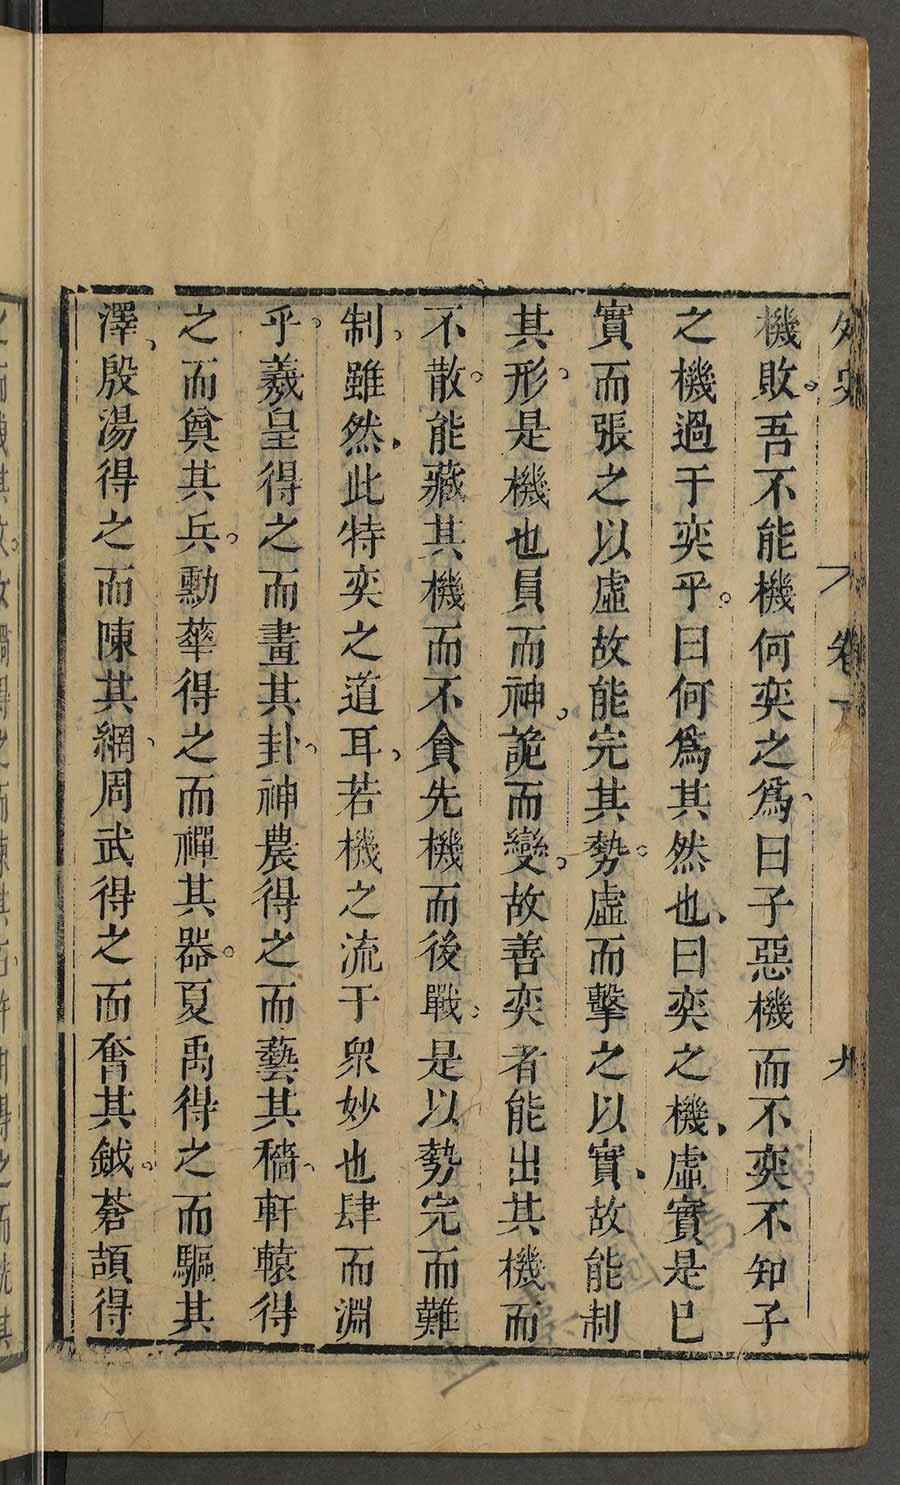 機敗吾不能機何奕之爲曰子惡機而不奕不知子
之機過于奕乎曰何爲其然也曰奕之機虛實是已
實而張之以虛故能完其勢虛而擊之以實故能制
其形是機也員而神詭而變故善奕者能出其機而
不散能藏其機而不貪先機而後戰是以勢完而難
制雖然此特奕之道耳若機之流于衆妙也肆而淵
乎羲皇得之而畫其卦神農得之而藝其穡軒轅得
之而奠其兵勳華得之而禪其器夏禹得之而驅其
澤殷湯得之而陳其網周武得之而奮其鉞蒼頡得